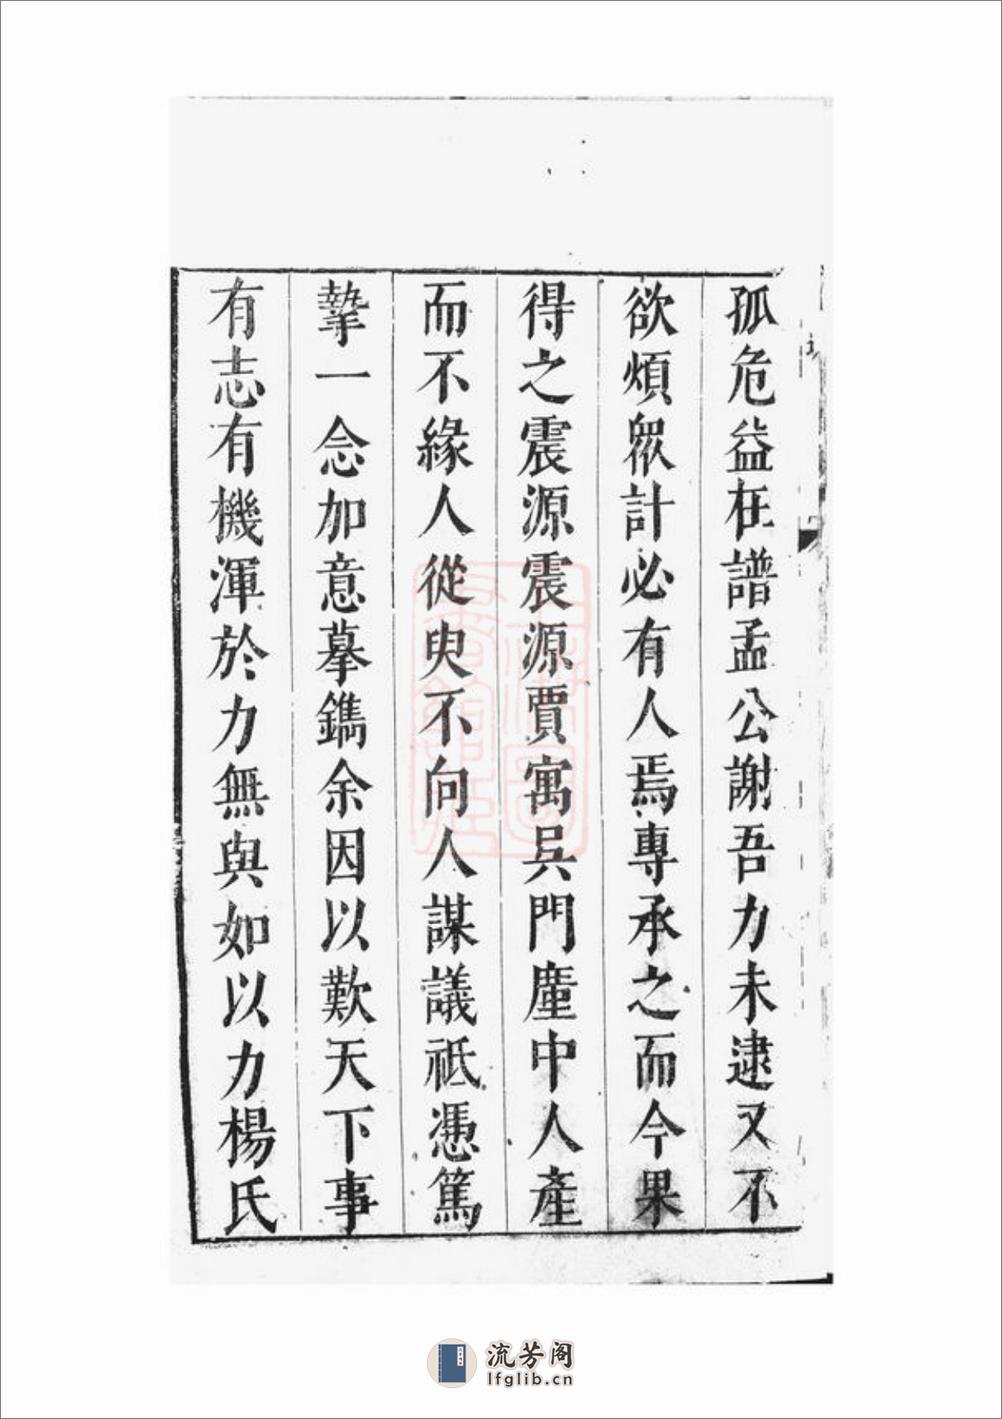 孤危益在譜孟公謝吾力未逮又不
欲煩眾計必有人焉專承之而今果
得之震源震源賈寓吳門廛中人產
而不緣人從臾不向人謀議祗憑篤
摯一念加意摹鐫余因以歎天下事
有志有機渾於力無與如以力楊氏
流芳阁
lfglib.cn